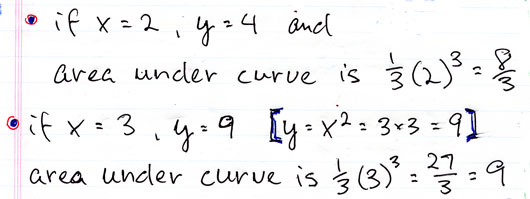 • if x = 2, y = 4 and
area under curve is 1/3 (2)³ = 8/3
• if x = 3, y = 9 [y = x² = 3×3 = 9]
area under curve is 1/3 (3)³ = 27/3 = 9